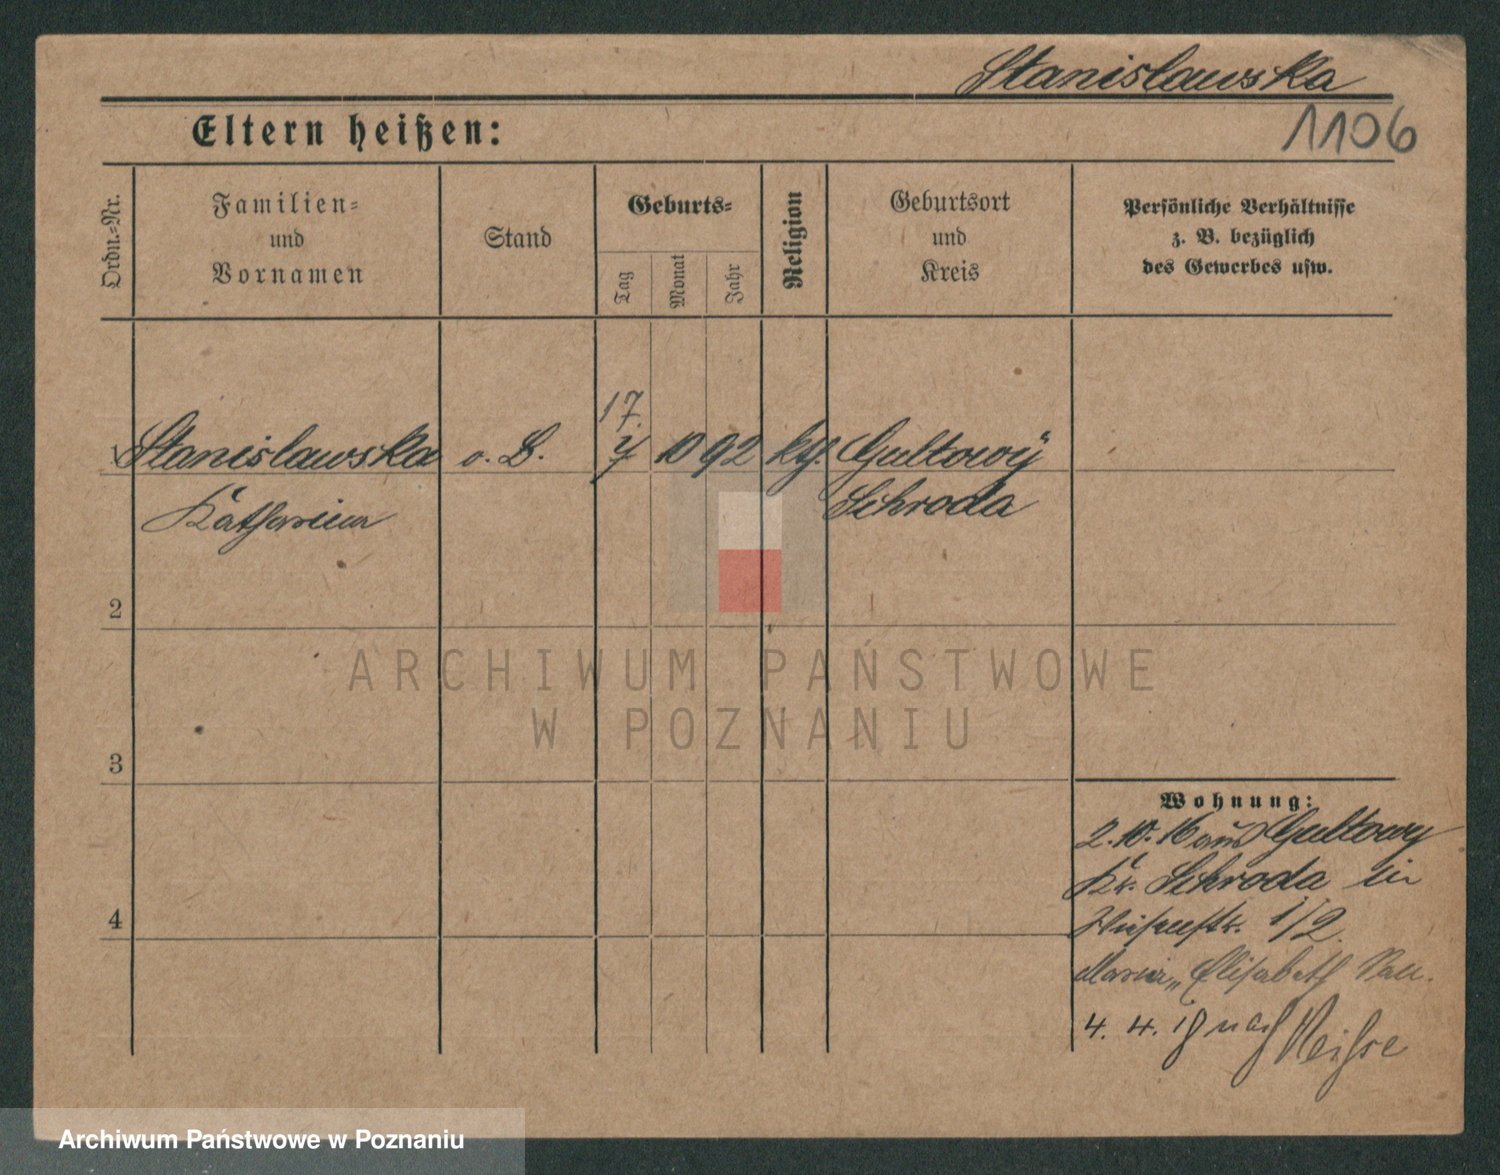 Stanislawska
1106
Eltern heißen:
Ordn.=Nr.
Familien=
und
Vornamen
Stand
Geburts=
Tag
Monat
Jahr
Religion
Geburtsort
und
Kreis
Persönliche Verhältnisse
z. B. bezüglich
des Gewerbes usw.
17.
1 Stanislawska o. B. 10 92 kth. Gultowy
Katharina Schroda
2
3
4
Wohnung:
2. 10. 16 aus Gultowy
Kr. Schroda in
1/2
Maria Elisabeth
4. 4. nach Neisse
ARCHIWUM PAŃSTWOWE
W POZNANIU
Archiwum Państwowe w Poznaniu